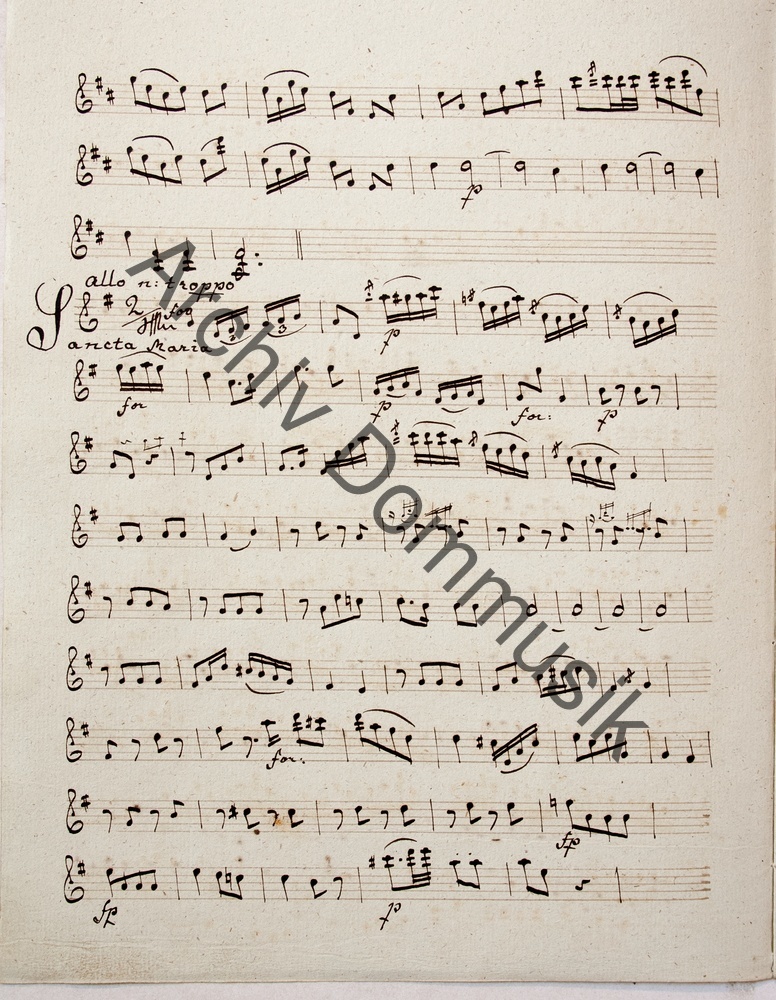 p
allo n: troppo
2 for
3
Sancta Maria
p
for
p
for:
p
for:
fp
fp
p
Archiv Dommusik